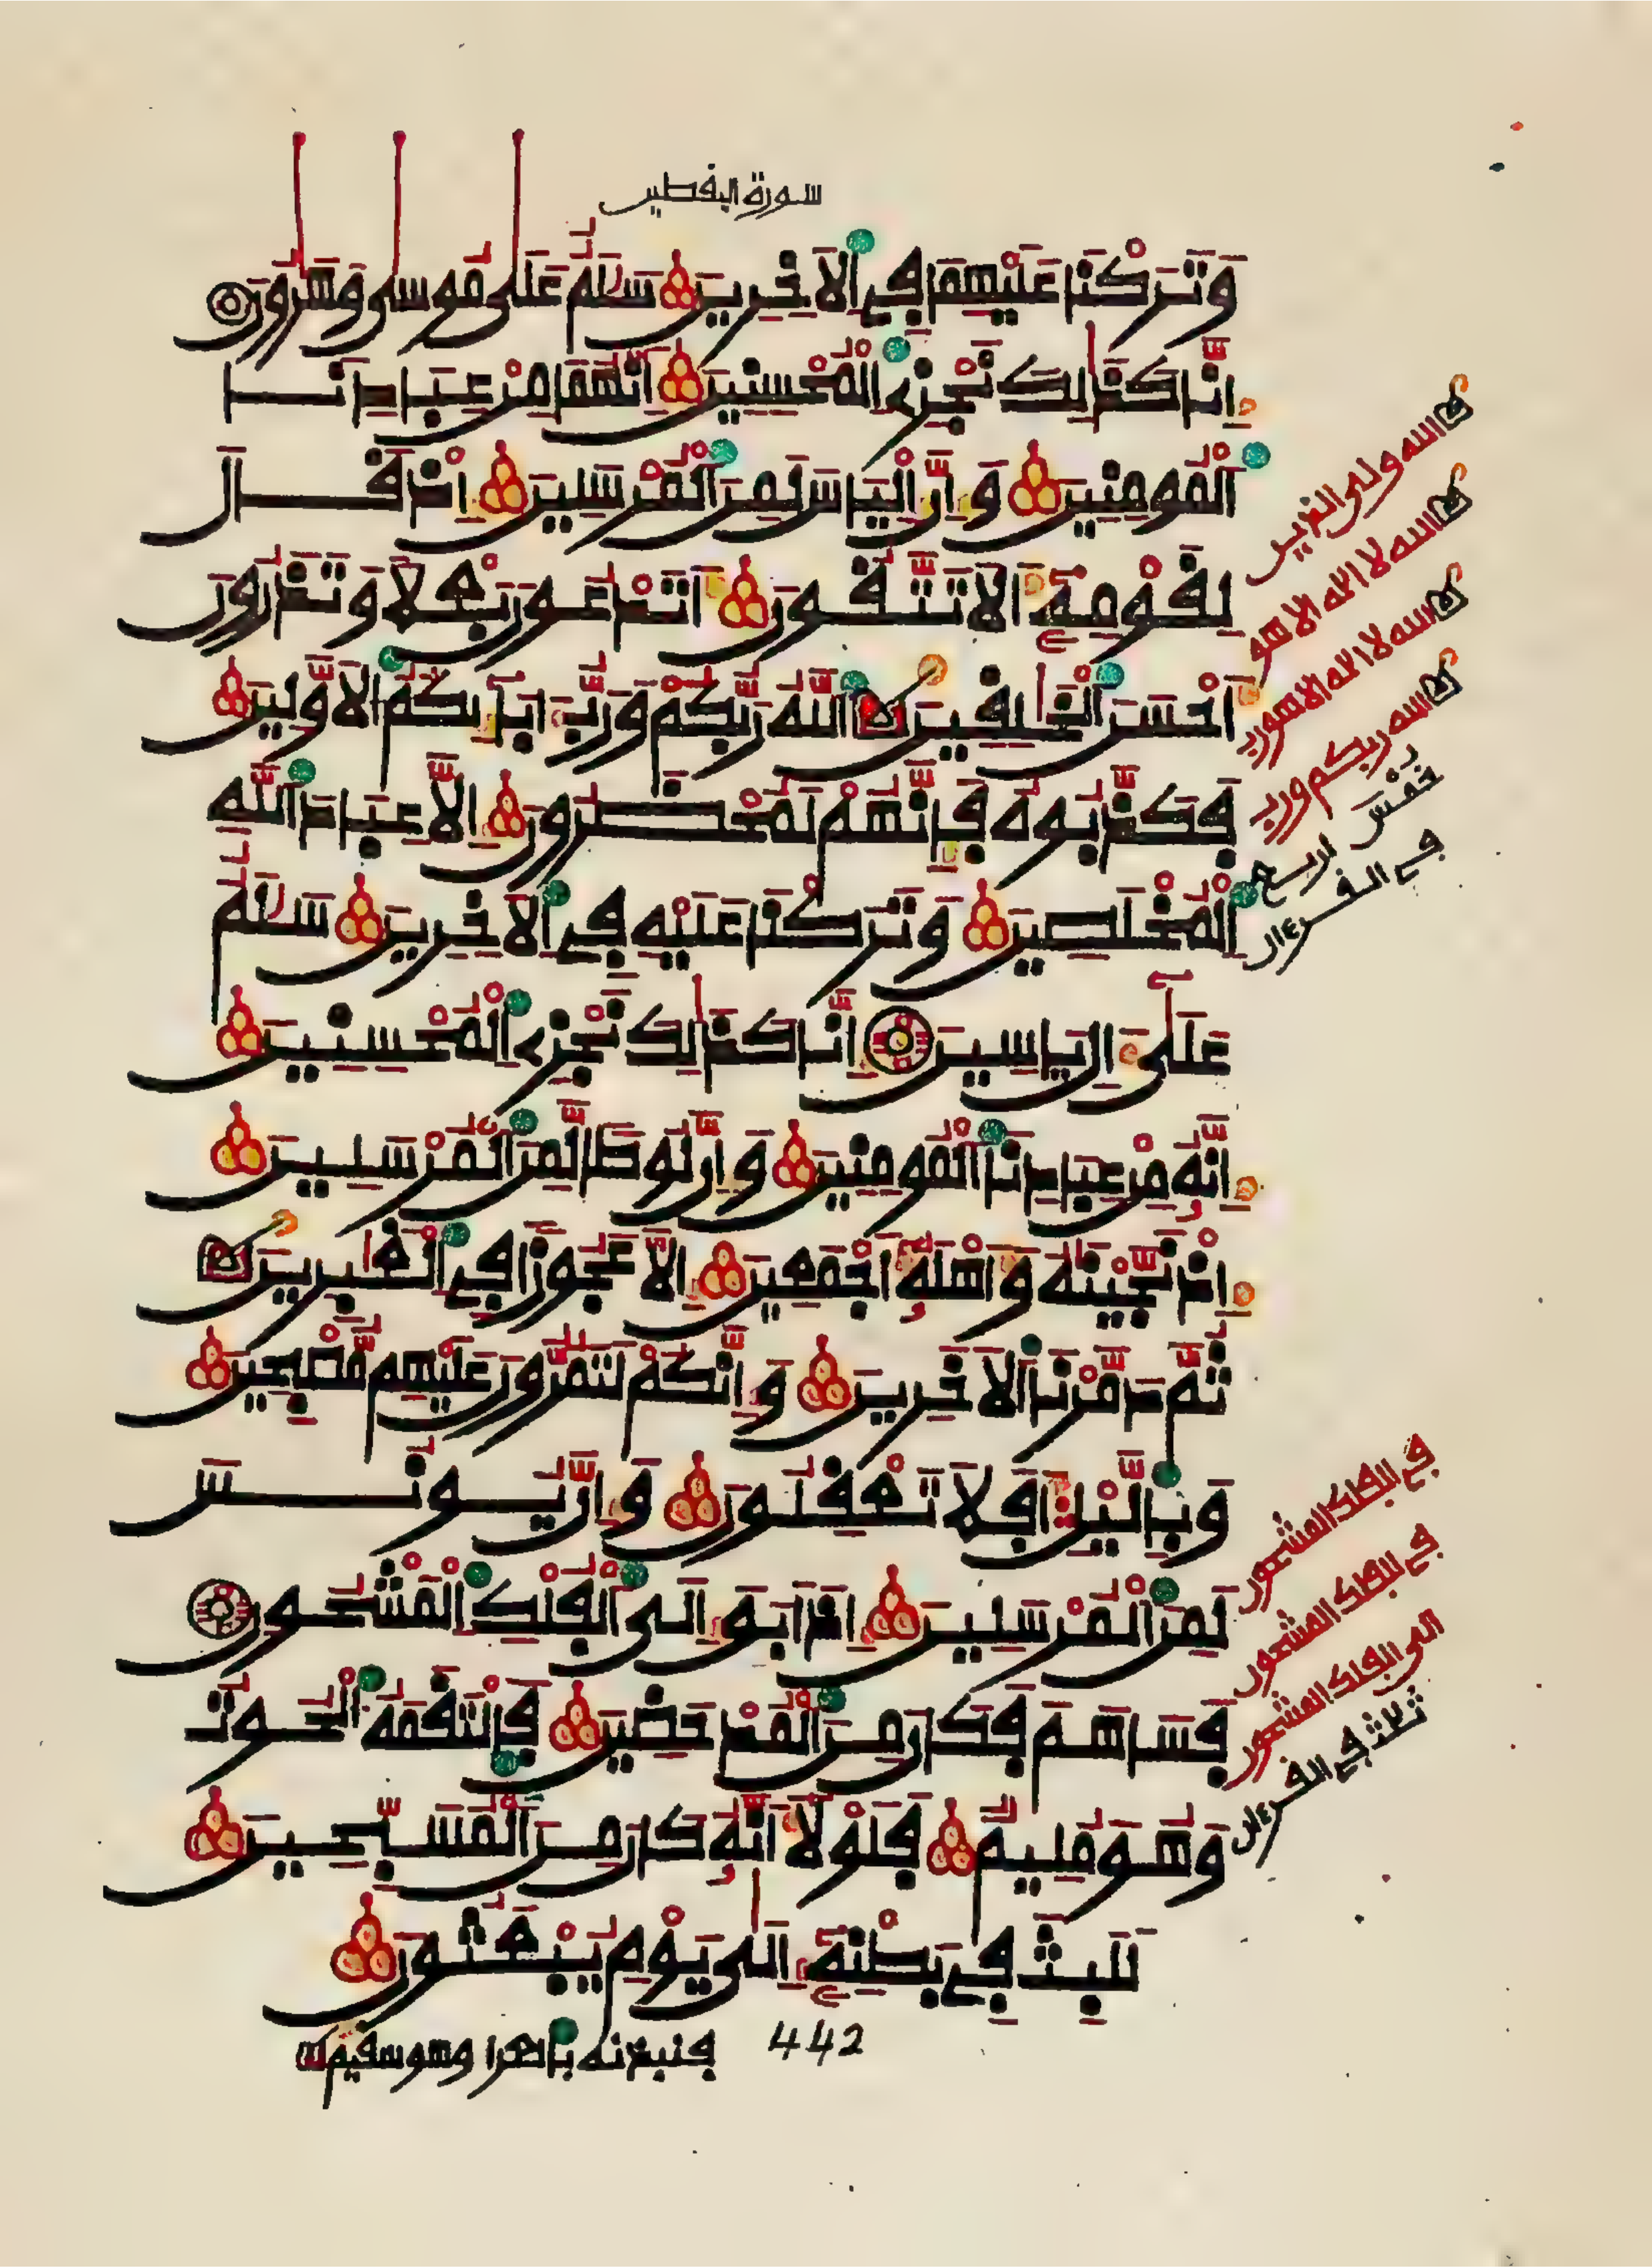 سورة اليقطين
وَتَرَكْنَا عَلَيْهِمَا فِي الَاخِرِينَ سَلَٰمٌ عَلَىٰ مُوسَىٰ وَهَٰرُونَ
إِنَّا كَذَٰلِكَ نَجْزِي الْمُحْسِنِينَ إِنَّهُمَا مِنْ عِبَادِنَا
الْمُومِنِينَ وَإِنَّ إِلْيَاسَ لَمِنَ الْمُرْسَلِينَ إِذْ قَالَ
لِقَوْمِهِ أَلَا تَتَّقُونَ أَتَدْعُونَ بَعْلًا وَتَذَرُونَ
أَحْسَنَ الْخَٰلِقِينَ اللَّهُ رَبُّكُمْ وَرَبُّ ءَابَآئِكُمُ الَاوَّلِينَ
فَكَذَّبُوهُ فَإِنَّهُمْ لَمُحْضَرُونَ إِلَّا عِبَادَ اللَّهِ
الْمُخْلَصِينَ وَتَرَكْنَا عَلَيْهِ فِي الَاخِرِينَ سَلَٰمٌ
عَلَىٰ ءَالِ يَاسِينَ إِنَّا كَذَٰلِكَ نَجْزِي الْمُحْسِنِينَ
إِنَّهُ مِنْ عِبَادِنَا الْمُومِنِينَ وَإِنَّ لُوطًا لَّمِنَ الْمُرْسَلِينَ
إِذْ نَجَّيْنَٰهُ وَأَهْلَهُ أَجْمَعِينَ إِلَّا عَجُوزًا فِي الْغَٰبِرِينَ
ثُمَّ دَمَّرْنَا الَاخَرِينَ وَإِنَّكُمْ لَتَمُرُّونَ عَلَيْهِم مُّصْبِحِينَ
وَبِالَّيْلِ أَفَلَا تَعْقِلُونَ وَإِنَّ يُونُسَ
لَمِنَ الْمُرْسَلِينَ إِذَ ابَقَ إِلَى الْفُلْكِ الْمَشْحُونِ
فَسَاهَمَ فَكَانَ مِنَ الْمُدْحَضِينَ فَالْتَقَمَهُ الْحُوتُ
وَهُوَ مُلِيمٌ فَلَوْلَا أَنَّهُ كَانَ مِنَ الْمُسَبِّحِينَ
لَلَبِثَ فِي بَطْنِهِ إِلَىٰ يَوْمِ يُبْعَثُونَ
442
فنبذنه بالعرا وهو سقيم
الله ولى الذين
الله لا اله الا هو
الله لا اله الا هو رب
الله ربكم ورب
في القرءان
في الفلك المشحون
في الفلك المشحون
الى الفلك المشحون
ثلاث في القرءان